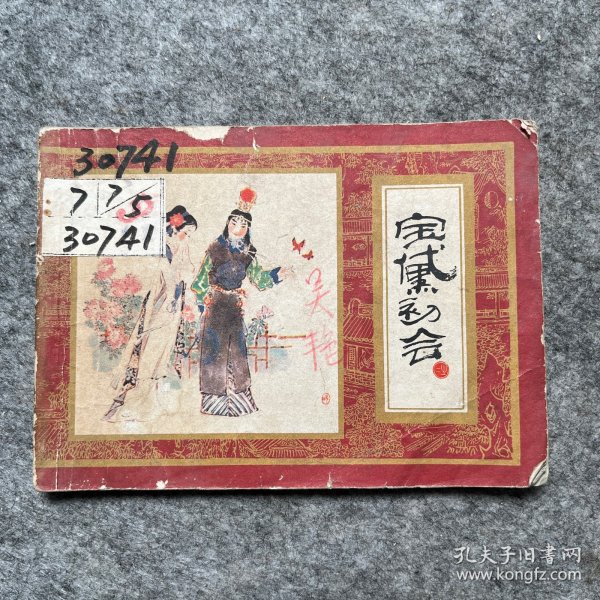 30741
7 7/5
30741
吴艳
宝黛初会
孔夫子旧书网
www.kongfz.com